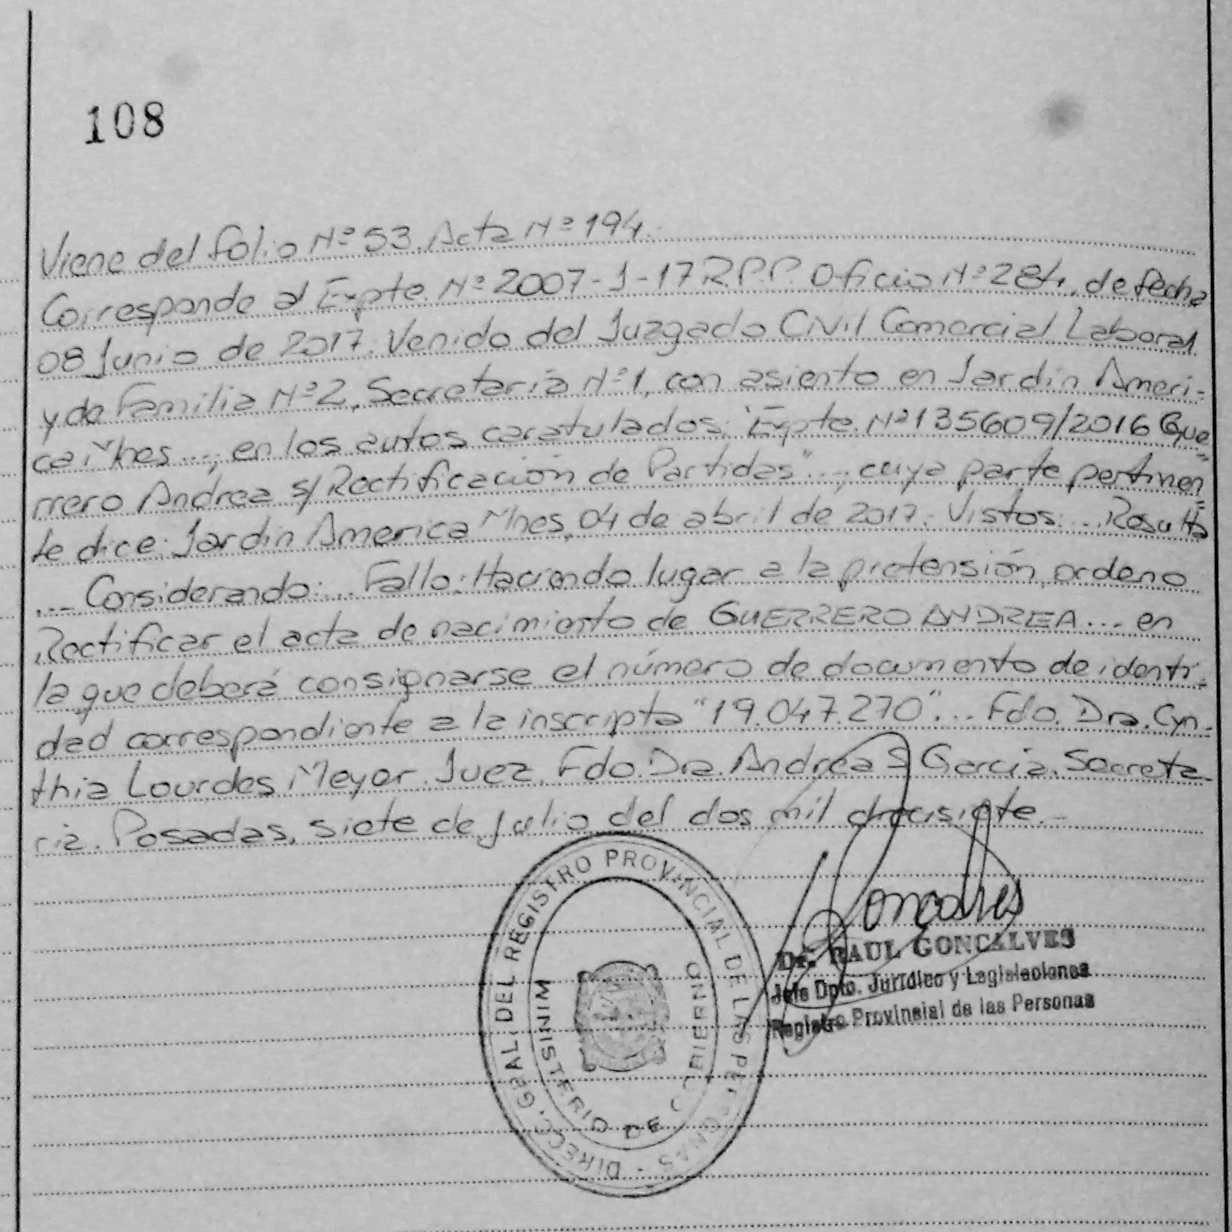 108
Viene del folio Nº 53. Acta Nº 194.
Corresponde al Expte. Nº 2007-J-17 R.P.P. Oficio Nº 284, de fecha
08 Junio de 2017. Venido del Juzgado Civil Comercial Laboral
y de Familia Nº 2, Secretaria Nº 1, con asiento en Jardin Ameri-
ca Mnes..., en los autos caratulados; "Expte. Nº 135609/2016 Gue
rrero Andrea s/ Rectificación de Partidas"..., cuya parte pertinen
te dice: Jardin America Mnes, 04 de abril de 2017. Vistos:... Resulta
... Considerando:... Fallo: Haciendo lugar a la pretensión, ordeno
Rectificar el acta de nacimiento de GUERRERO ANDREA... en
la que deberá consignarse el número de documento de identi-
dad correspondiente a la inscripta "19.047.270"... Fdo. Dra. Cyn-
thia Lourdes Meyer. Juez. Fdo. Dra. Andrea S Garcia. Secreta
ria. Posadas, siete de Julio del dos mil diecisiete.-
Goncalves
Dr. RAUL GONCALVES
Jefe Dpto. Jurídico y Legislaciones
Registro Provincial de las Personas
DIRECC. GRAL. DEL REGISTRO PROVINCIAL DE LAS PERSONAS
MINISTERIO DE GOBIERNO